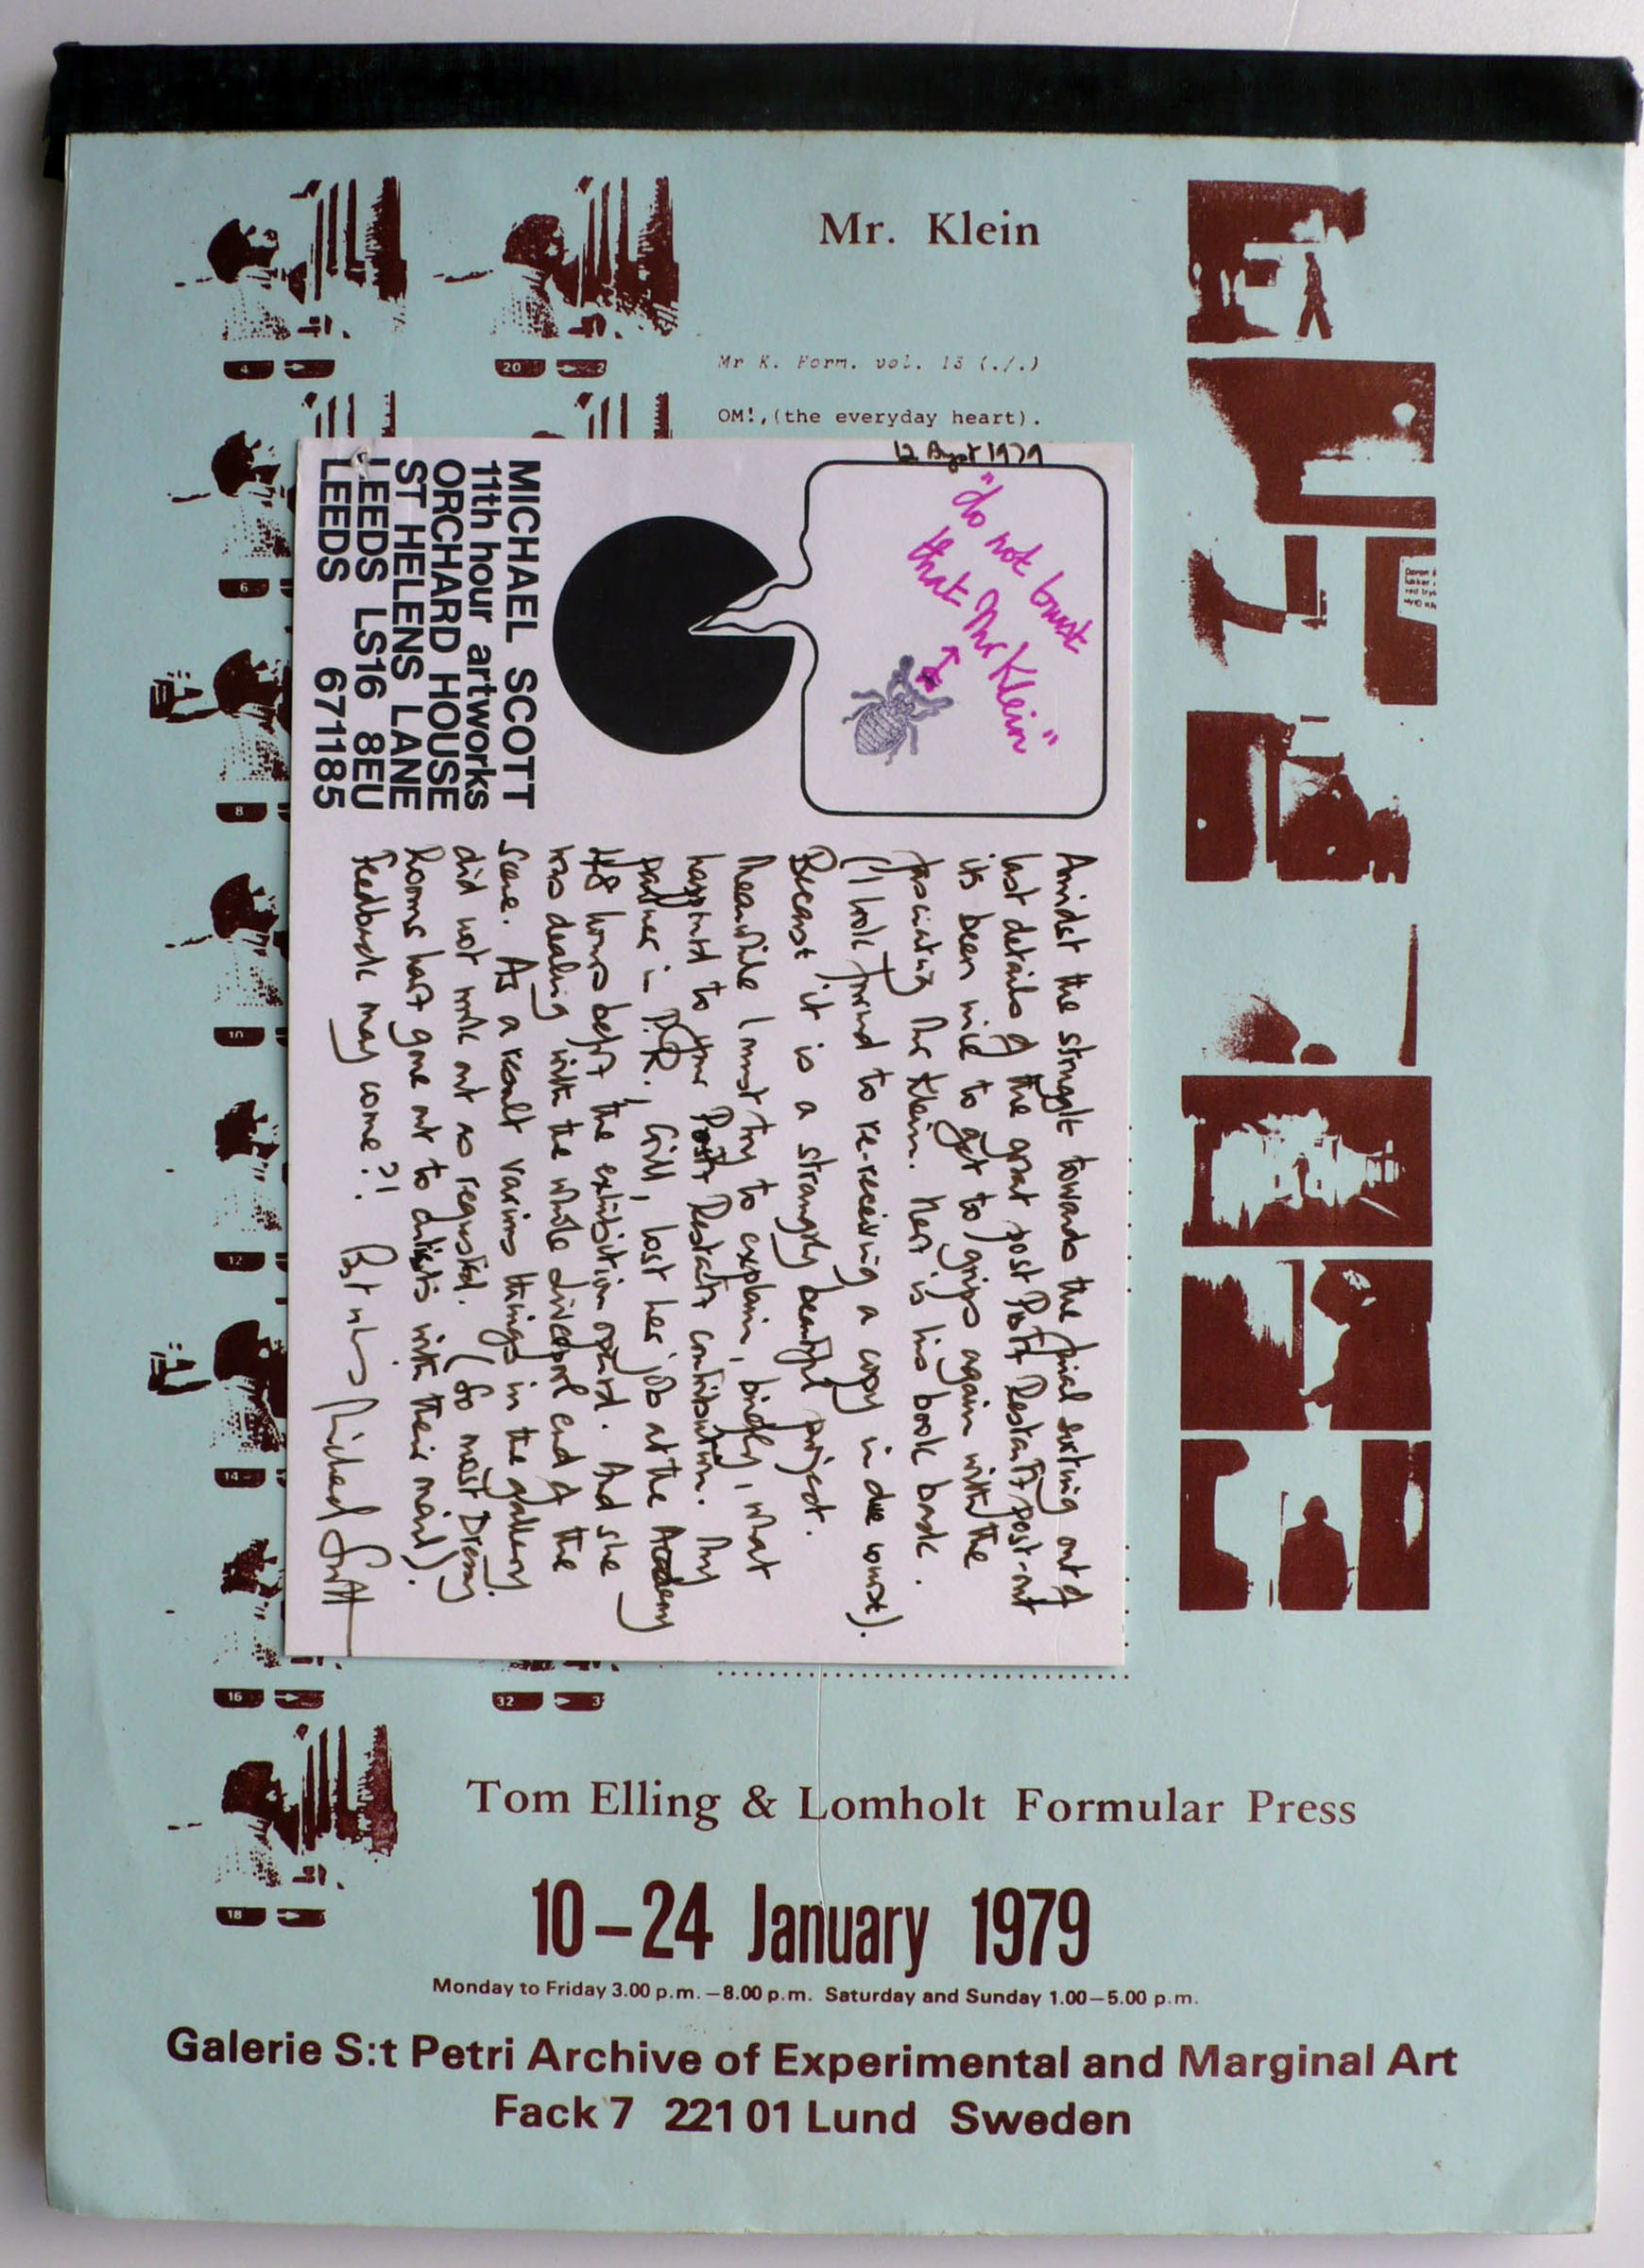 Mr. Klein
Mr K. Form. vol. 13 (./.)
OM!,(the everyday heart).
12 August 1979
"do not trust
that Mr Klein"
MICHAEL SCOTT
11th hour artworks
ORCHARD HOUSE
ST HELENS LANE
LEEDS LS16 8EU
LEEDS 671185
Amidst the struggle towards the final sorting out of
last details of the great post Poste Restante post-out
it's been nice to get to grips again with the
fascinating Mr Klein. Here is his book back.
(I look forward to re-receiving a copy in due course).
Because it is a strangely beautiful project.
Meanwhile I must try to explain, briefly, what
happened to your Poste Restante contribution. My
partner in P.R., Gill, lost her job at the Academy
48 hours before the exhibition opened. And she
was dealing with the whole Liverpool end of the
scene. As a result various things in the gallery
did not work out as requested. (So most Dreamy
Rooms have gone out to artists with their mail).
Feedback may come?! Best wishes Michael Scott
4
20 2
6
8
10
12
14
16
32 3
18
Tom Elling & Lomholt Formular Press
10–24 January 1979
Monday to Friday 3.00 p.m.–8.00 p.m. Saturday and Sunday 1.00–5.00 p.m.
Galerie S:t Petri Archive of Experimental and Marginal Art
Fack 7 221 01 Lund Sweden